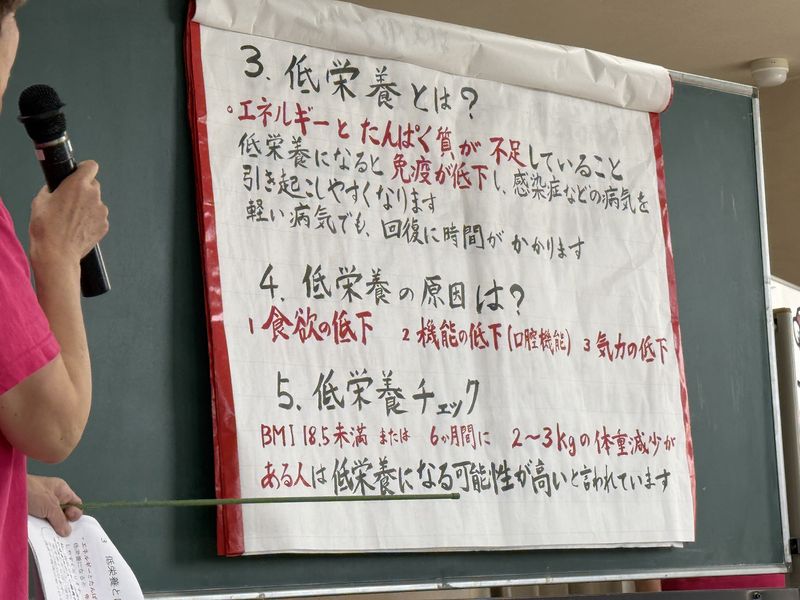 3. 低栄養とは?
。エネルギーとたんぱく質が不足していること
低栄養になると免疫が低下し、感染症などの病気を
引き起こしやすくなります
軽い病気でも、回復に時間がかかります
4. 低栄養の原因は?
1 食欲の低下 2 機能の低下(口腔機能) 3 気力の低下
5. 低栄養チェック
BMI 18.5未満 または 6か月間に 2〜3kgの体重減少が
ある人は低栄養になる可能性が高いと言われています
3 低栄養と